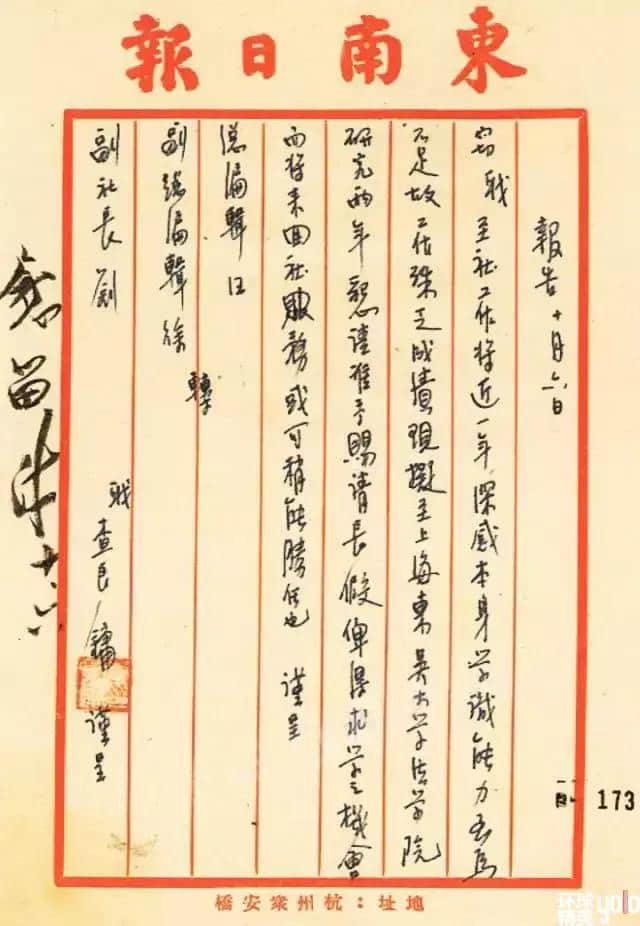 東南日報
報告 十月六日
窃職至社工作将近一年深感本身学識能力至為
不足故工作殊乏成績現擬至上海東吳大学法学院
研究两年懇請准予賜請長假俾得求学之機會
而将来回社服務或可稍能勝任也 謹呈
總編輯汪
副總編輯徐 轉
副社長劉
職 查良鏞 謹呈
十六
173
地址：杭州衆安橋
环球
yolo